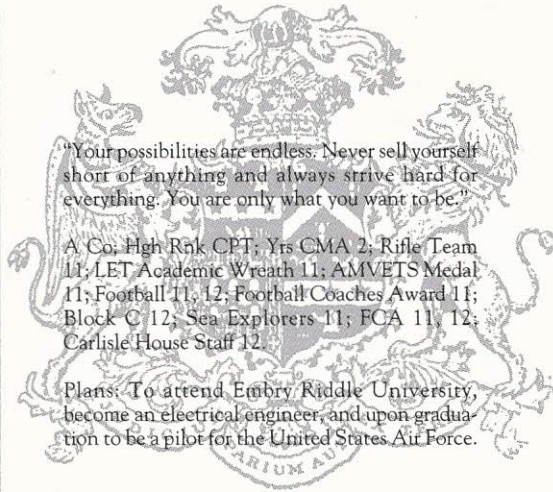 “Your possibilities are endless. Never sell yourself
short of anything and always strive hard for
everything. You are only what you want to be.”
A Co; Hgh Rnk CPT; Yrs CMA 2; Rifle Team
11; LET Academic Wreath 11; AMVETS Medal
11; Football 11, 12; Football Coaches Award 11;
Block C 12; Sea Explorers 11; FCA 11, 12;
Carlisle House Staff 12.
Plans: To attend Embry Riddle University,
become an electrical engineer, and upon gradua-
tion to be a pilot for the United States Air Force.